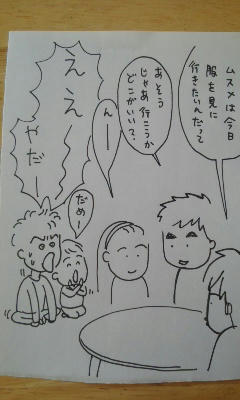 ムスメは今日
服を見に
行きたいんだって
あそう
じゃあ行こうか
どこがいい?
んーー
ええー
やだー
だめー